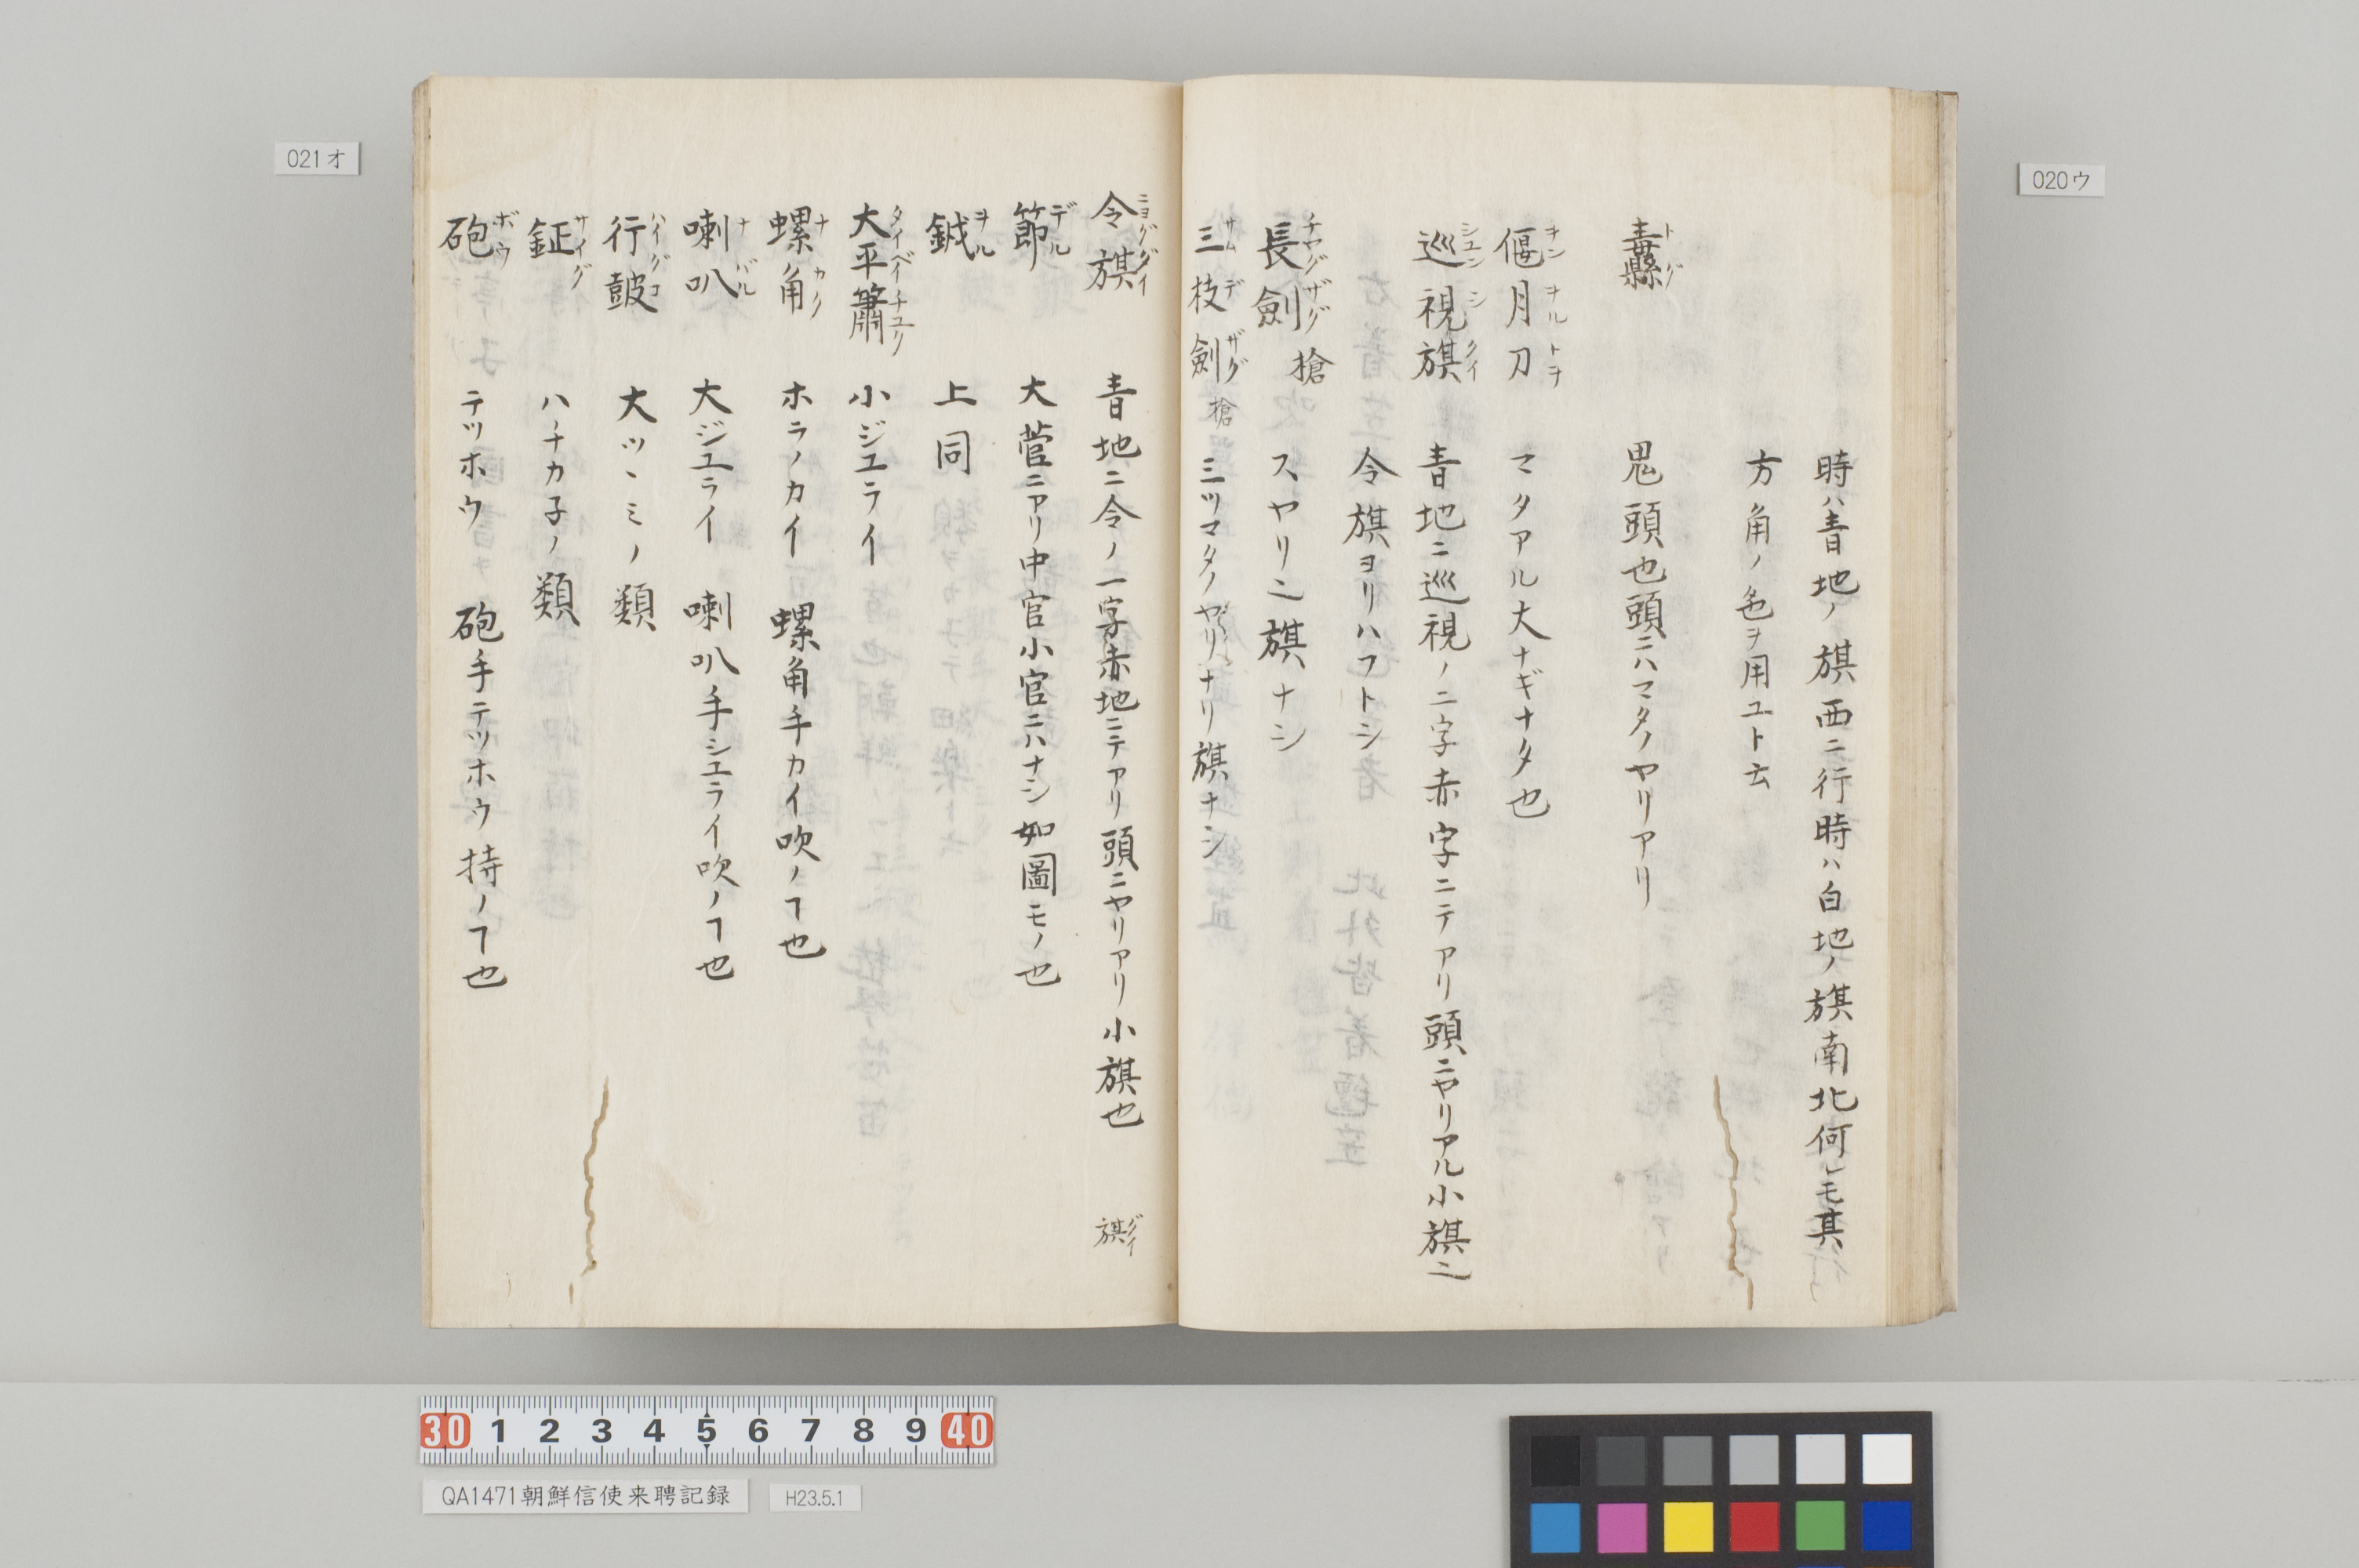 時ハ青地ノ旗西ニ行時ハ白地ノ旗南北何レモ其
方角ノ色ヲ用ユト云
纛 トグ 鬼頭也頭ニハマタノヤリアリ
偃月刀 ヲンヲルトヲ マタアル大ナギナタ也
巡視旗 シユンシクイ 青地ニ巡視ノ二字赤字ニテアリ頭ニヤリアル小旗ニ
令旗ヨリハフトシ者
長劍 チヤグザグ 槍 スヤリニ旗ナシ
三枝劍 サムデザグ 槍 三ツマタノヤリナリ旗ナシ
令旗 ニヨググイ 青地ニ令ノ一字赤地ニテアリ頭ニヤリアリ小旗也 旗 グイ
節 デル 大菅ニアリ中官小官ニハナシ如圖モノ也
鉞 ヲル 上同
大平簫 タイベイチユリ 小ジユライ
螺角 ナカノ ホラノカイ 螺角手カイ吹ノヿ也
喇叭 ナバル 大ジユライ 喇叭手シユライ吹ノヿ也
行鼓 ハイグコ 大ツヽミノ類
鉦 サイグ ハチカ子ノ類
砲 ボウ テツホウ 砲手テツホウ持ノヿ也
021オ
020ウ
30 1 2 3 4 5 6 7 8 9 40
QA1471朝鮮信使来聘記録
H23.5.1